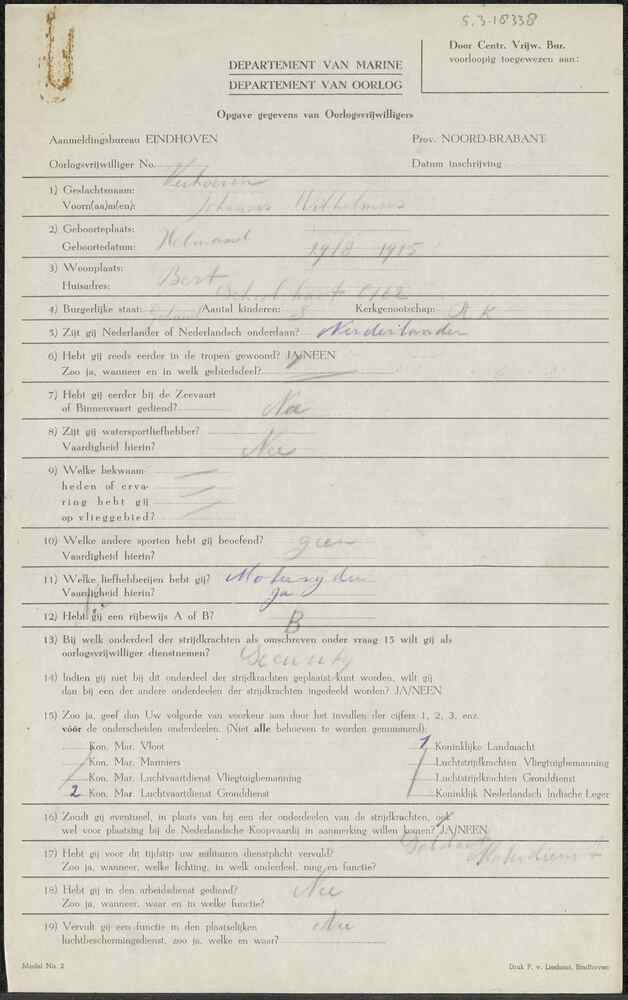 S.3-18338
Door Centr. Vrijw. Bur.
voorloopig toegewezen aan:
DEPARTEMENT VAN MARINE
DEPARTEMENT VAN OORLOG
Opgave gegevens van Oorlogsvrijwilligers
Aanmeldingsbureau EINDHOVEN Prov. NOORD-BRABANT
Oorlogsvrijwilliger No. Datum inschrijving
1) Geslachtsnaam: Verhoeven
Voorna(a)m(en): Johannes Wilhelmus
2) Geboorteplaats: Helmond
Geboortedatum: 1915
3) Woonplaats:
Huisadres:
4) Burgerlijke staat: Aantal kinderen: 3 Kerkgenootschap: R K
5) Zijt gij Nederlander of Nederlandsch onderdaan? Nederlander
6) Hebt gij reeds eerder in de tropen gewoond? JA/NEEN
Zoo ja, wanneer en in welk gebiedsdeel?
7) Hebt gij eerder bij de Zeevaart
of Binnenvaart gediend? Nee
8) Zijt gij watersportliefhebber?
Vaardigheid hierin? Nee
9) Welke bekwaam-
heden of erva-
ring hebt gij
op vlieggebied?
10) Welke andere sporten hebt gij beoefend? geen
Vaardigheid hierin?
11) Welke liefhebberijen hebt gij? Motorrijden
Vaardigheid hierin? Ja
12) Hebt gij een rijbewijs A of B? B
13) Bij welk onderdeel der strijdkrachten als omschreven onder vraag 15 wilt gij als
oorlogsvrijwilliger dienstnemen? Security
14) Indien gij niet bij dit onderdeel der strijdkrachten geplaatst kunt worden, wilt gij
dan bij een der andere onderdeelen der strijdkrachten ingedeeld worden? JA/NEEN
15) Zoo ja, geef dan Uw volgorde van voorkeur aan door het invullen der cijfers 1, 2, 3, enz.
vóór de onderscheiden onderdeelen. (Niet alle behoeven te worden genummerd).
Kon. Mar. Vloot 1 Koninklijke Landmacht
Kon. Mar. Mariniers Luchtstrijdkrachten Vliegtuigbemanning
Kon. Mar. Luchtvaartdienst Vliegtuigbemanning Luchtstrijdkrachten Gronddienst
2 Kon. Mar. Luchtvaartdienst Gronddienst Koninklijk Nederlandsch Indische Leger
16) Zoudt gij eventueel, in plaats van bij een der onderdeelen van de strijdkrachten, ook
wel voor plaatsing bij de Nederlandsche Koopvaardij in aanmerking willen komen? JA/NEEN
17) Hebt gij voor dit tijdstip uw militairen dienstplicht vervuld? Soldaat
Zoo ja, wanneer, welke lichting, in welk onderdeel, rang en functie? Motordienst
18) Hebt gij in den arbeidsdienst gediend? Nee
Zoo ja, wanneer, waar en in welke functie?
19) Vervult gij een functie in den plaatselijken Nee
luchtbeschermingsdienst, zoo ja, welke en waar?
Model No. 2 Druk F. v. Lieshout, Eindhoven